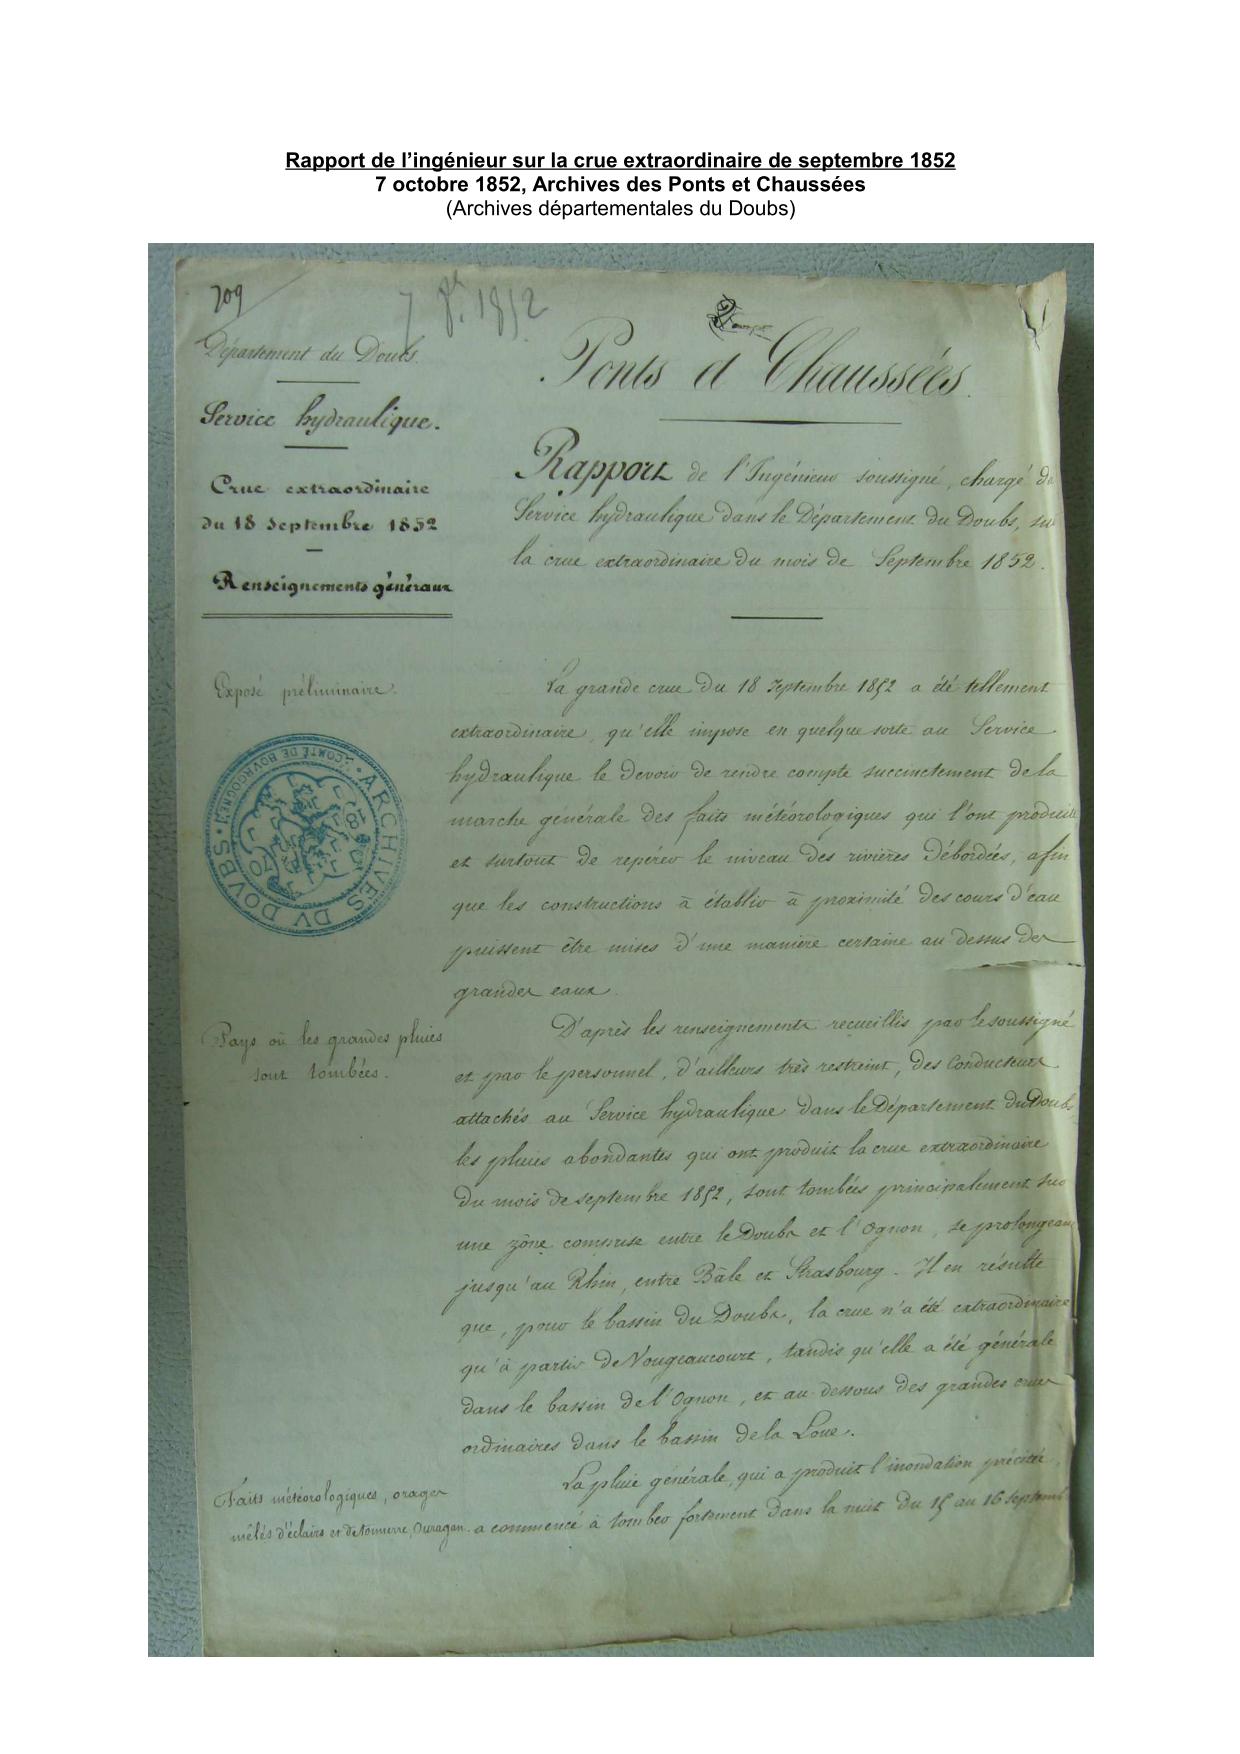 Rapport de l’ingénieur sur la crue extraordinaire de septembre 1852
7 octobre 1852, Archives des Ponts et Chaussées
(Archives départementales du Doubs)
709
7 8.bre 1852
Département du Doubs.
Service hydraulique.
Crue extraordinaire
du 18 Septembre 1852
Renseignements généraux
Ponts et Chaussées.
Rapport de l'Ingénieur soussigné, chargé du
Service hydraulique dans le Département du Doubs, sur
la crue extraordinaire du mois de Septembre 1852.
Exposé préliminaire.
La grande crue du 18 Septembre 1852 a été tellement
extraordinaire, qu'elle impose en quelque sorte au Service
hydraulique le devoir de rendre compte succinctement de la
marche générale des faits météorologiques qui l'ont produite
et surtout de repérer le niveau des rivières débordées, afin
que les constructions à établir à proximité des cours d'eau
puissent être mises d'une manière certaine au dessus des
grandes eaux.
ARCHIVES DV DOVBS
COMTÉ DE BOVRGOGNE
1870
Pays où les grandes pluies
sont tombées.
D'après les renseignements recueillis par le soussigné
et par le personnel, d'ailleurs très restreint, des Conducteurs
attachés au Service hydraulique dans le Département du Doubs
les pluies abondantes qui ont produit la crue extraordinaire
du mois de septembre 1852, sont tombées principalement sur
une zône comprise entre le Doubs et l'Ognon, se prolongeant
jusqu'au Rhin, entre Bâle et Strasbourg. Il en résulte
que, pour le bassin du Doubs, la crue n'a été extraordinaire
qu'à partir de Vougeaucourt, tandis qu'elle a été générale
dans le bassin de l'Ognon, et au-dessous des grandes crues
ordinaires dans le bassin de la Loue.
Faits météorologiques, orages
mêlés d'éclairs et de tonnerre, Ouragan.
La pluie générale, qui a produit l'inondation précitée,
a commencé à tomber fortement dans la nuit du 15 au 16 Septembre